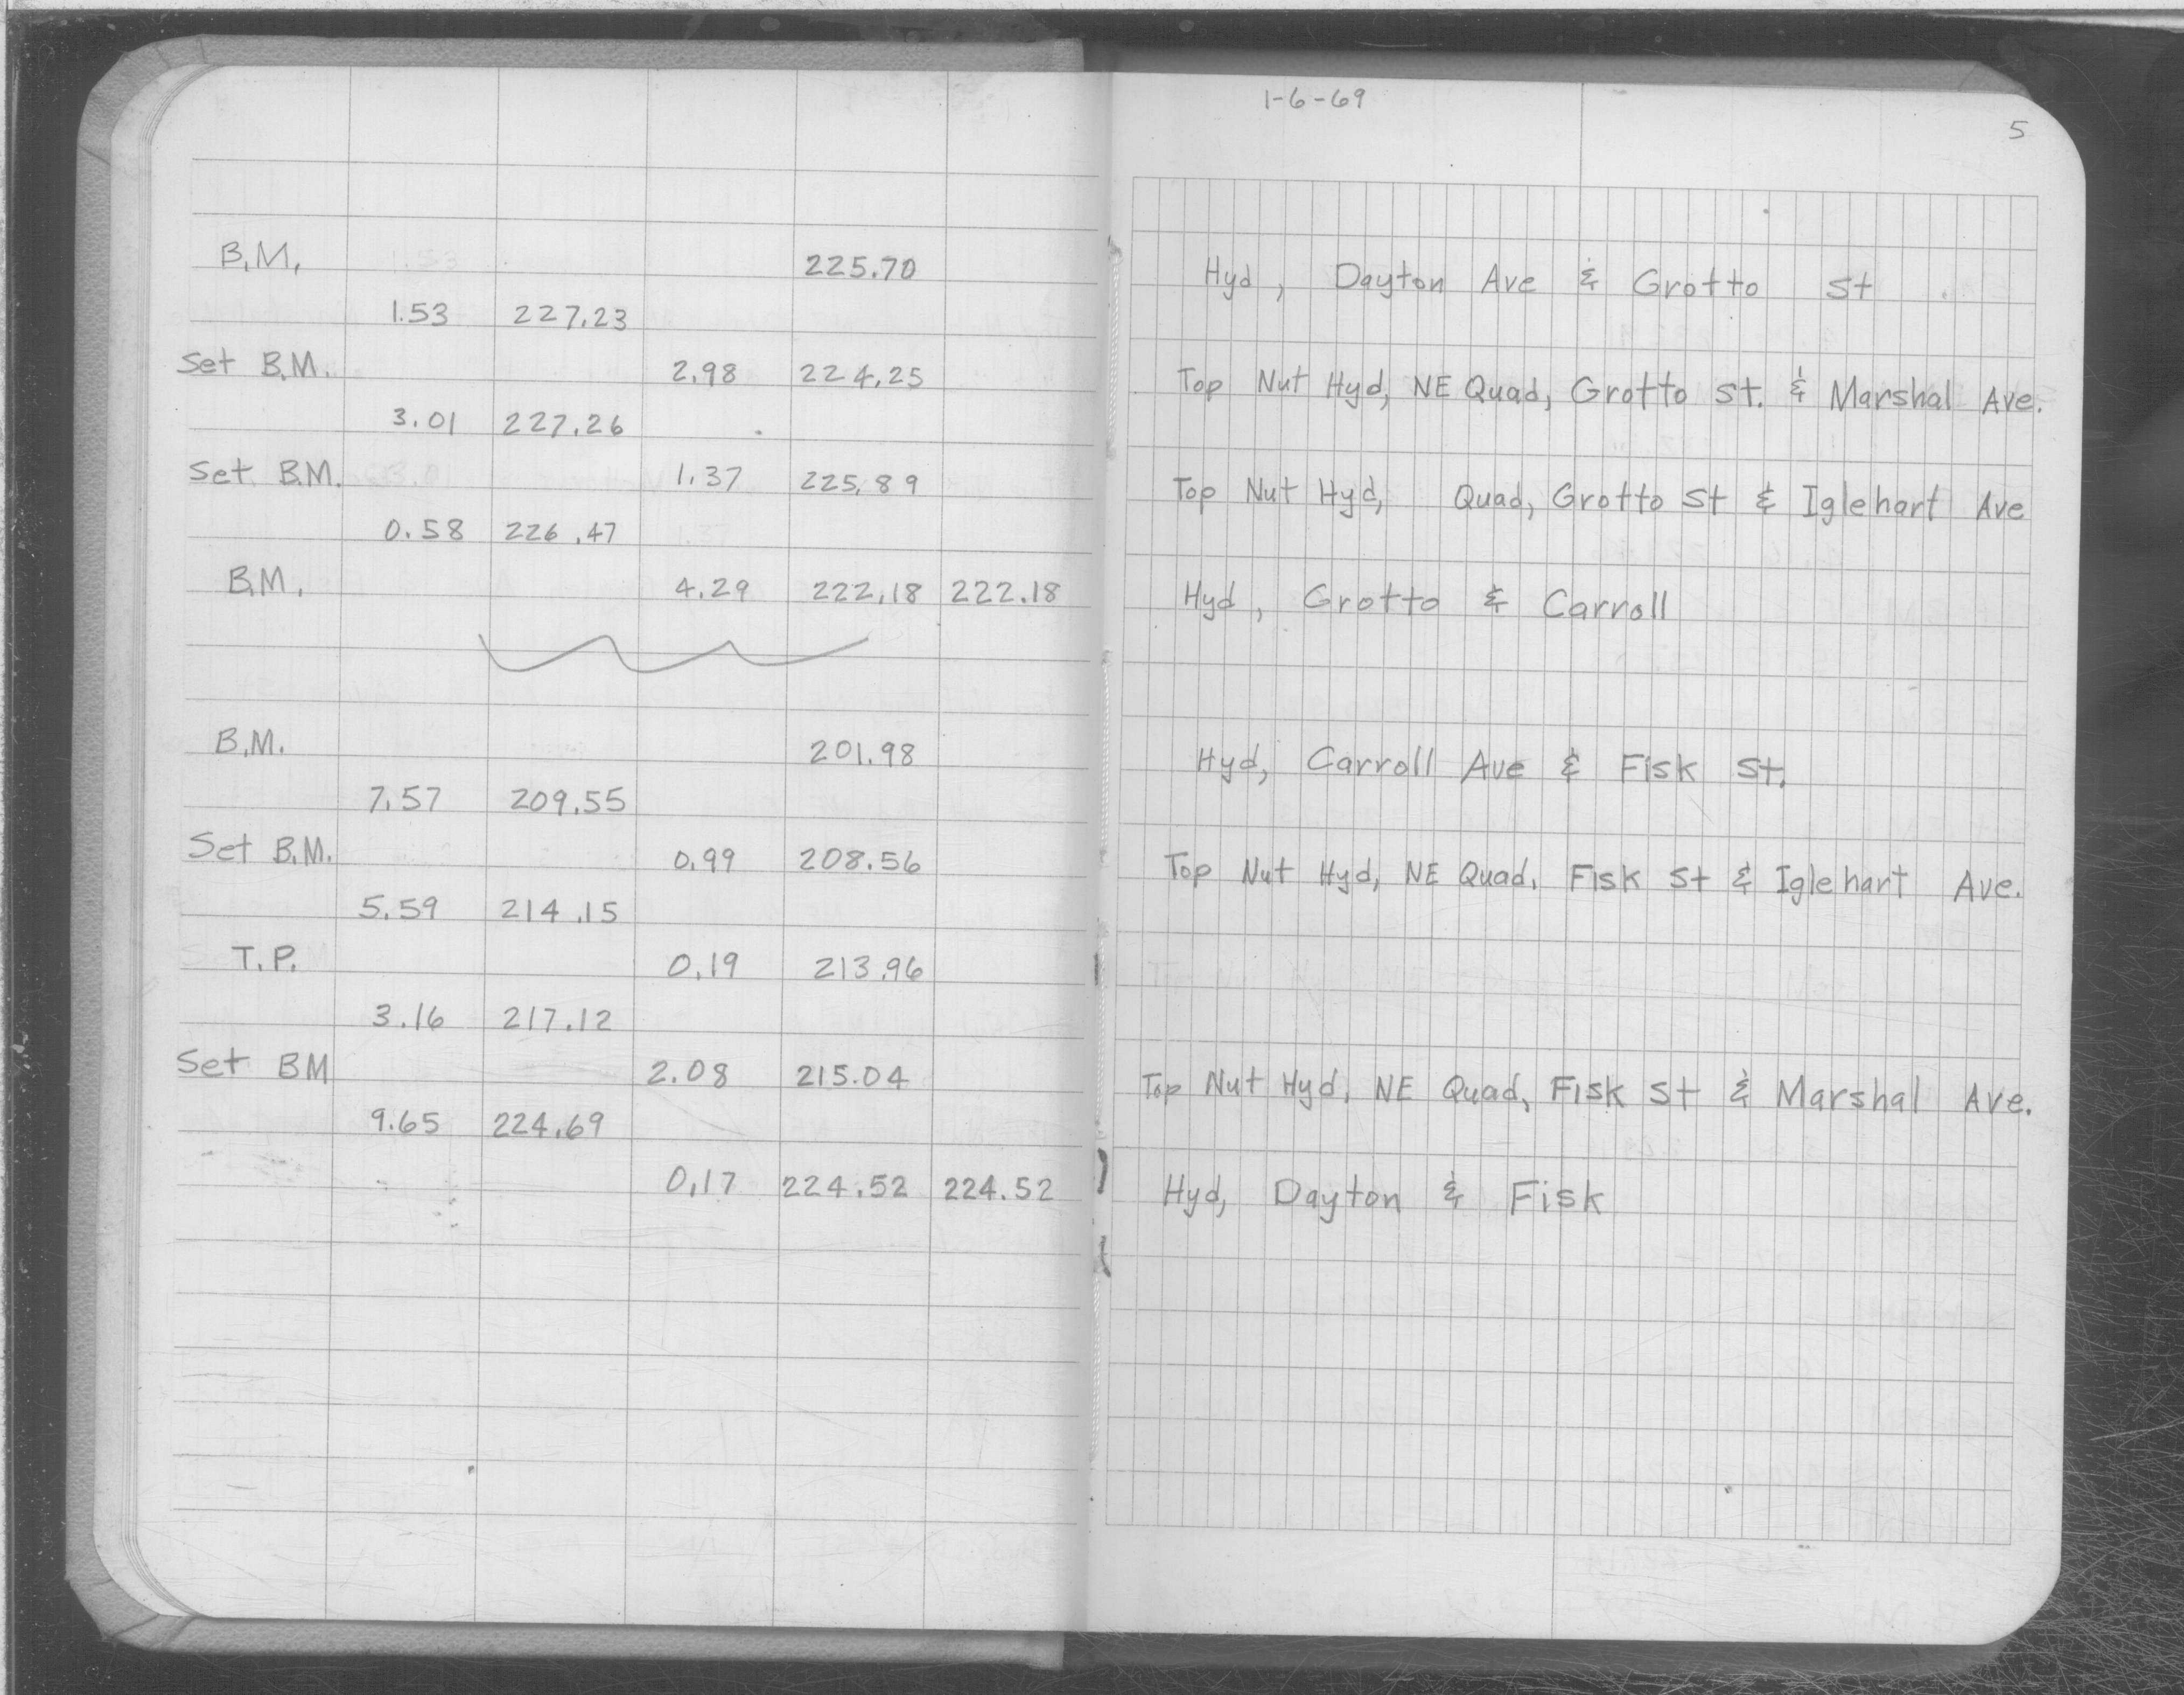 1-6-69
5
B.M. 225.70 Hyd, Dayton Ave & Grotto St
1.53 227.23
Set B.M. 2.98 224.25 Top Nut Hyd, NE Quad, Grotto St. & Marshal Ave.
3.01 227.26
Set B.M. 1.37 225.89 Top Nut Hyd, Quad, Grotto St & Iglehart Ave
0.58 226.47
B.M. 4.29 222.18 222.18 Hyd, Grotto & Carroll
B.M. 201.98 Hyd, Carroll Ave & Fisk St.
7.57 209.55
Set B.M. 0.99 208.56 Top Nut Hyd, NE Quad. Fisk St & Iglehart Ave.
5.59 214.15
T.P. 0.19 213.96
3.16 217.12
Set BM 2.08 215.04 Top Nut Hyd, NE Quad, Fisk St & Marshal Ave.
9.65 224.69
0.17 224.52 224.52 Hyd, Dayton & Fisk